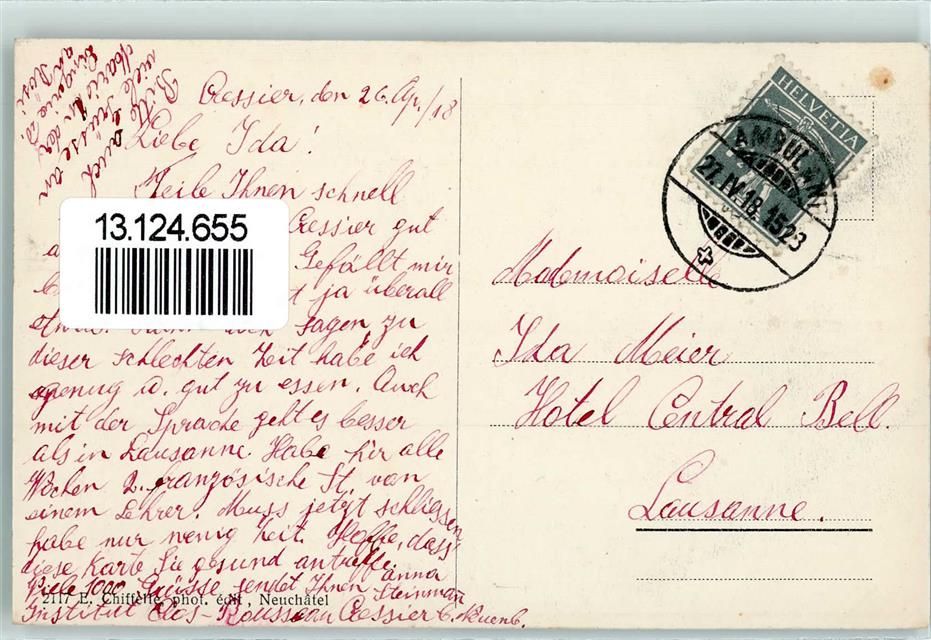 Cressier, den 26. Ap./18
Liebe Ida!
Teile Ihnen schnell
Cressier gut
Gefällt mir
ja überall
etwas. Kann auch sagen zu
dieser schlechten Zeit habe ich
genug u. gut zu essen. Auch
mit der Sprache geht es besser
als in Lausanne. Habe hir alle
Wochen 2. französische St. von
einem Lehrer. Muss jetzt schliessen
habe nur wenig Zeit. Hoffe, dass
diese Karte Sie gesund antreffe.
Viele 1000 Grüsse sendet Ihnen Anna
Steinman
Institut Clos-Rousseau Cressier b. Neuenb.
Bitte auch
viele Grüsse an
Marie
13.124.655
2117 E. Chiffelle, phot. édit., Neuchâtel
HELVETIA
AMBULANT
27.IV.18.1523
Mademoiselle
Ida Meier
Hotel Central Bell.
Lausanne.